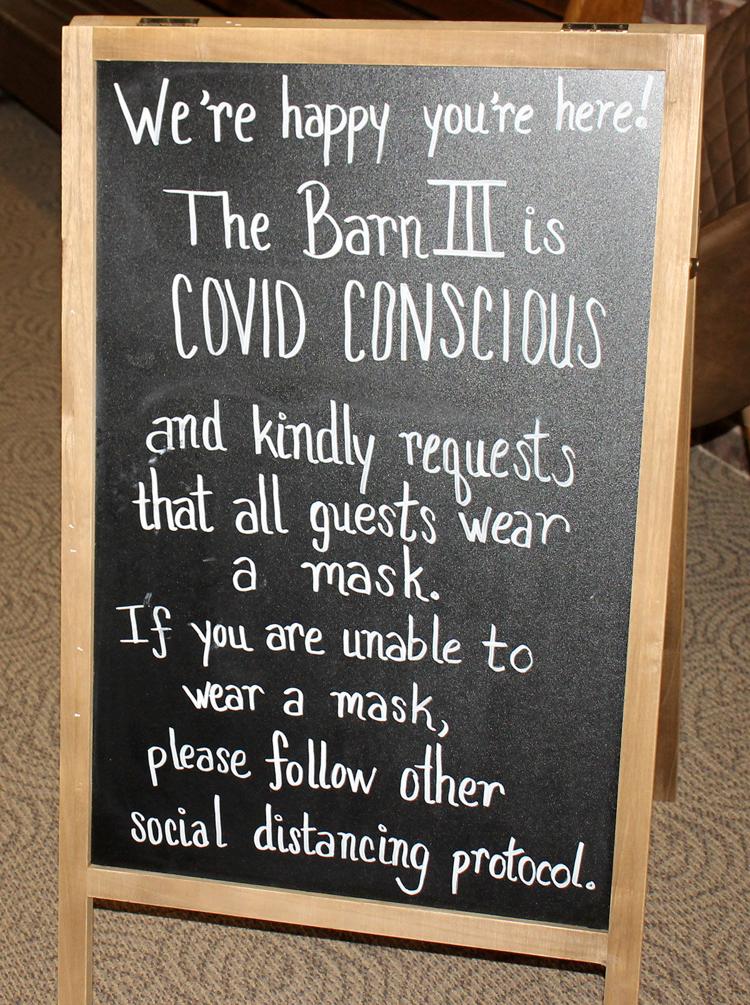 We're happy you're here!
The Barn III is
COVID CONSCIOUS
and kindly requests
that all guests wear
a mask.
If you are unable to
wear a mask,
please follow other
social distancing protocol.